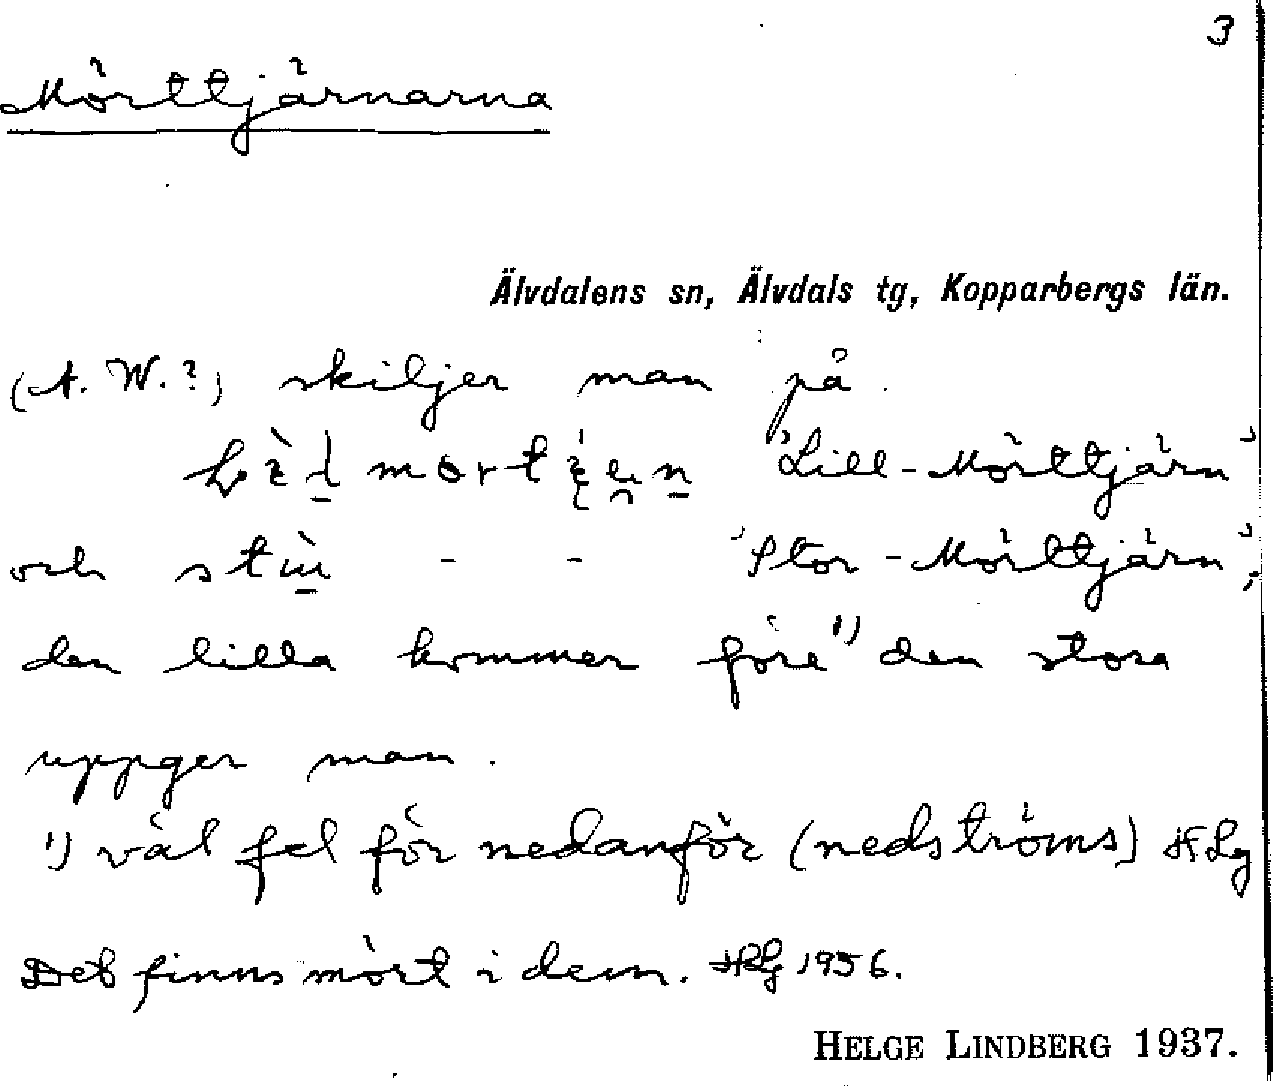 3
Mörttjärnarna
Älvdalens sn, Älvdals tg, Kopparbergs län.
(A. W.?) skiljer man på
"Lill-Mörttjärn"
och - - "Stor-Mörttjärn",
den lilla kommer före 1) den stora
uppger man.
1) väl fel för nedanför (nedströms) HLg
Det finns mört i dem. HLg 1956.
HELGE LINDBERG 1937.